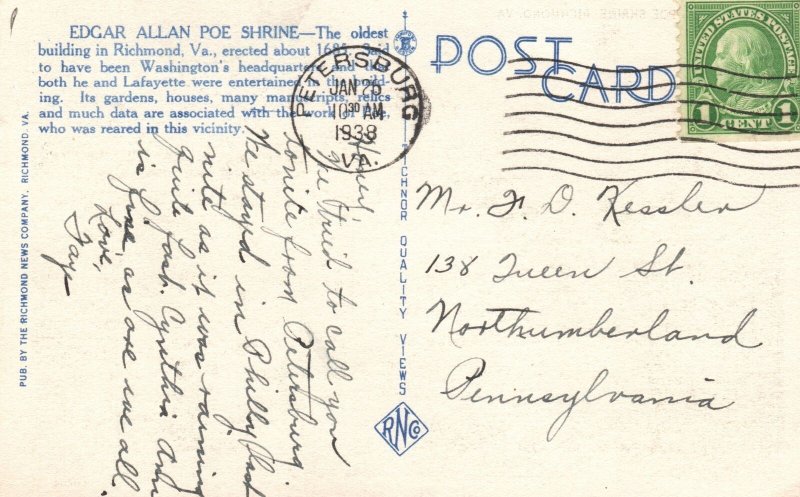 EDGAR ALLAN POE SHRINE—The oldest
building in Richmond, Va., erected about 1685. Said
to have been Washington's headquarters and that
both he and Lafayette were entertained in the build-
ing. Its gardens, houses, many manuscripts, relics
and much data are associated with the work of Poe,
who was reared in this vicinity.
POST
CARD
UNITED STATES POSTAGE
1 CENT 1
PETERSBURG
JAN 25
10 30 AM
1938
VA.
We tried to call you
tonite from Petersburg
We stayd in Philly last
nite as it was raining
quite fast. Cynthia Ann
is fine as are we all.
Love,
Faye
Mr. F. D. Kessler
138 Queen St.
Northumberland
Pennsylvania
PUB. BY THE RICHMOND NEWS COMPANY, RICHMOND, VA.
TICHNOR QUALITY VIEWS
RNCo